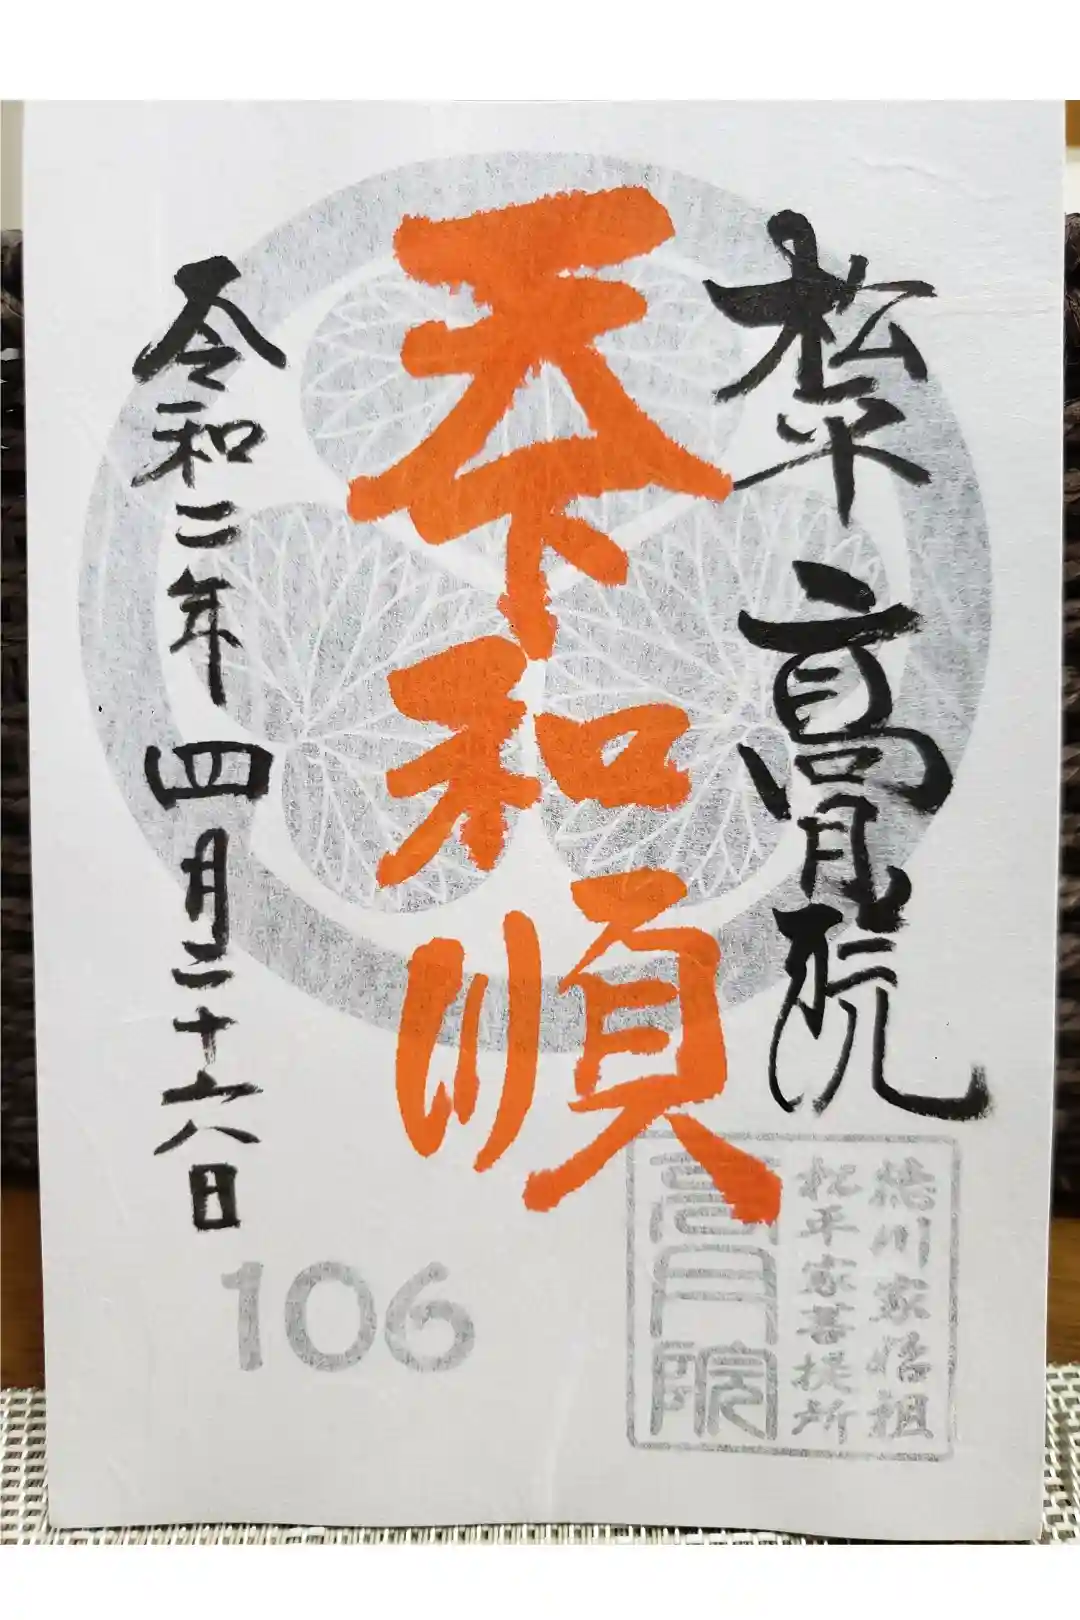 松平 高月院
天下和順
令和二年 四月二十六日
徳川家始祖
松平家菩提所
高月院
106